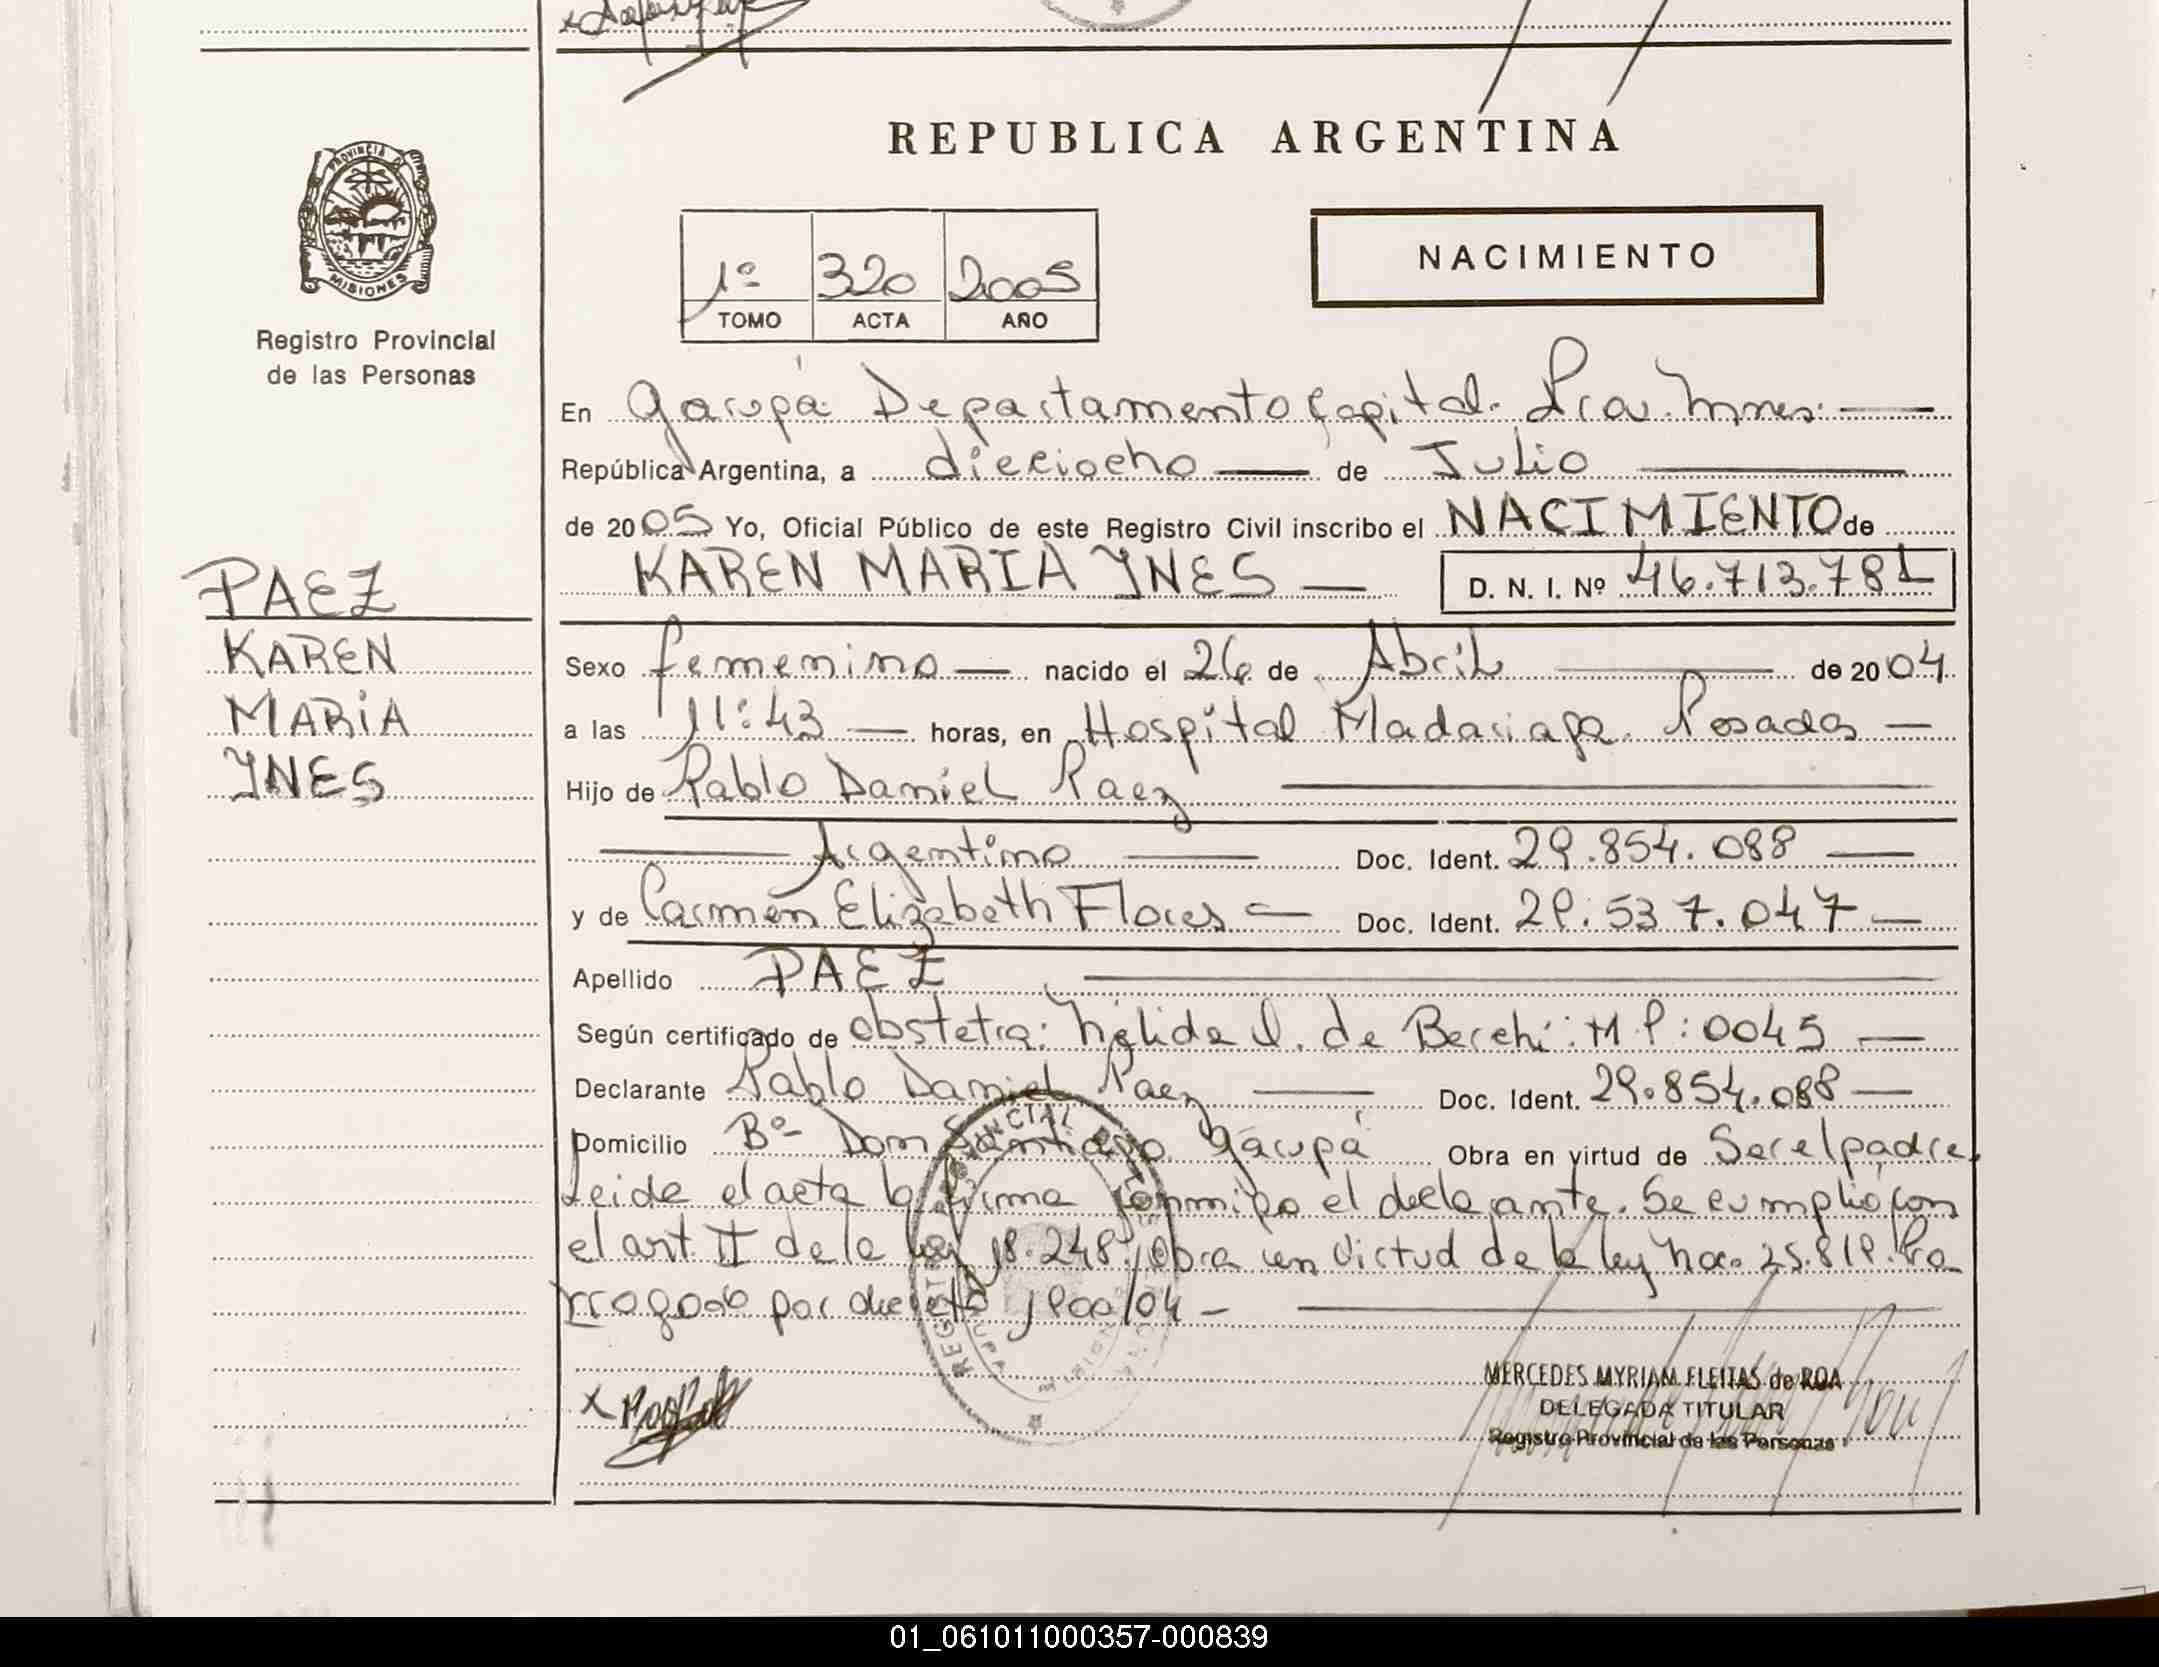 REPUBLICA ARGENTINA
PROVINCIA DE
MISIONES
Registro Provincial
de las Personas
1º 320 2005
TOMO ACTA AÑO
NACIMIENTO
En Garupá Departamento Capital. Prov. Mnes.
República Argentina, a dieciocho de Julio
de 2005 Yo, Oficial Público de este Registro Civil inscribo el NACIMIENTO de
KAREN MARIA YNES D. N. I. Nº 46.713.781
PAEZ
KAREN
MARIA
YNES
Sexo femenino nacido el 26 de Abril de 2004
a las 11:43 horas, en Hospital Madariaga. Posadas
Hijo de Pablo Daniel Paez
Argentino Doc. Ident. 29.854.088
y de Carmen Elizabeth Flores Doc. Ident. 29.537.047
Apellido PAEZ
Según certificado de obstetra: Nélida I. de Berchi: M.P: 0045
Declarante Pablo Daniel Paez Doc. Ident. 29.854.088
Domicilio Bº Don Santiago Garupá Obra en virtud de Ser el padre.
Leida el acta la firma conmigo el declarante. Se cumplió con
el art. II de la ley 18.248. Obra en virtud de la ley nac. 25.819. Pro
rrogado por decreto 1900/04
MERCEDES MYRIAM FLEITAS de ROA
DELEGADA TITULAR
Registro Provincial de las Personas
01_061011000357-000839